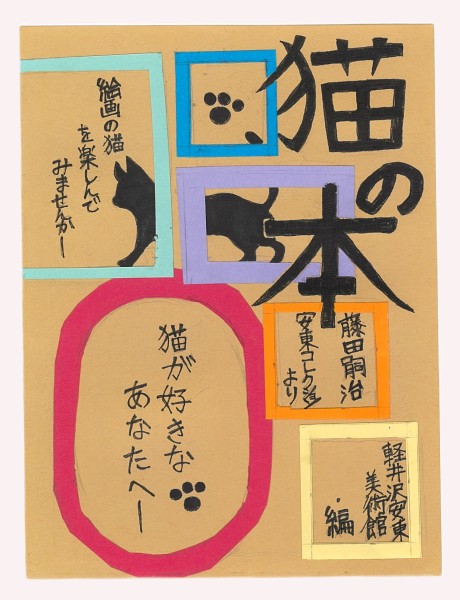 猫
の
本
絵画の猫
を楽しんで
みませんかー
藤田嗣治
安東コレクション
より
猫が好きな
あなたへー
軽井沢安東
美術館
・編